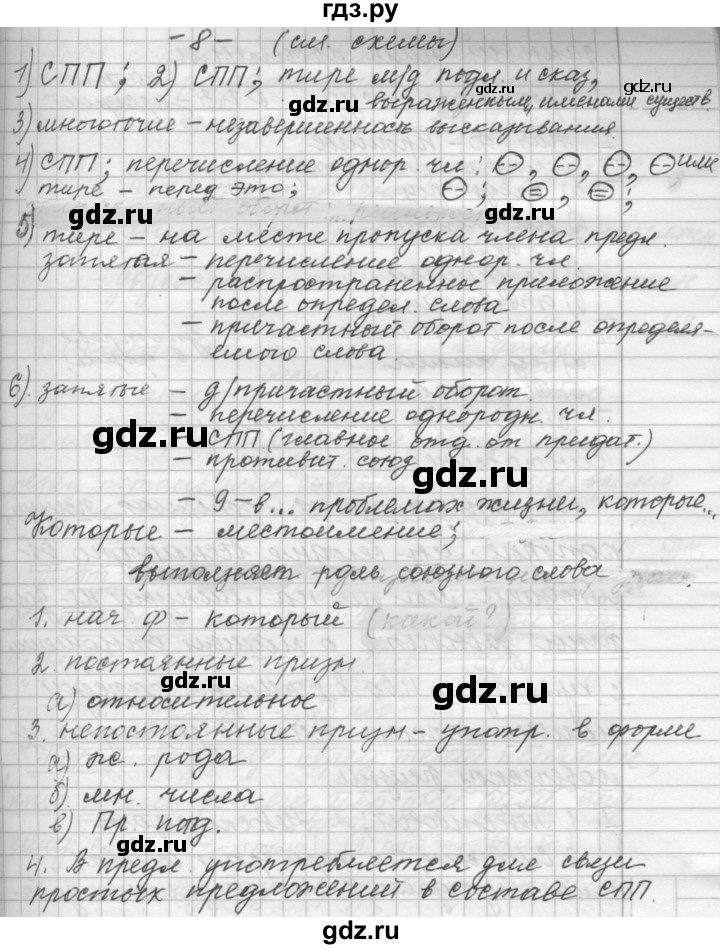 гдз.ру
- 8 - (см. схемы)
1) СПП; 2) СПП; тире м/д подл. и сказ,
gdz.ru
выраженным, именами существ.
3) многоточие – незавершенность высказывания.
gdz.ru gdz.ru
4) СПП; перечисление однор. чл: ⊖, ⊖, ⊖, ⊖ или
тире – перед это; ⊖; ⊜, ⊜;
gdz.ru gdz.ru
5) тире – на месте пропуска члена предл.
запятая – перечисление однор. чл.
– распространенное приложение
после определ. слова
– причастный оборот после определя-
емого слова.
gdz.ru
6). запятые – д/причастный оборот.
– перечисление однородн. чл.
gdz.ru
– СПП (главное отд. от придат.)
– противит. союз
gdz.ru
– 9-в... проблемах жизни, которые...
Которые – местоимение;
gdz.ru
выполняет роль союзного слова
gdz.ru gdz.ru
1. нач ф – который (какой?)
2. постоянные призн
а) относительное
gdz.ru gdz.ru
3. непостоянные призн – употр. в форме
а) ж. рода
gdz.ru
б) мн. числа
в) Пр. пад.
gdz.ru
4. В предл. употребляется для связи
простых предложений в составе СПП.
gdz.ru gdz.ru